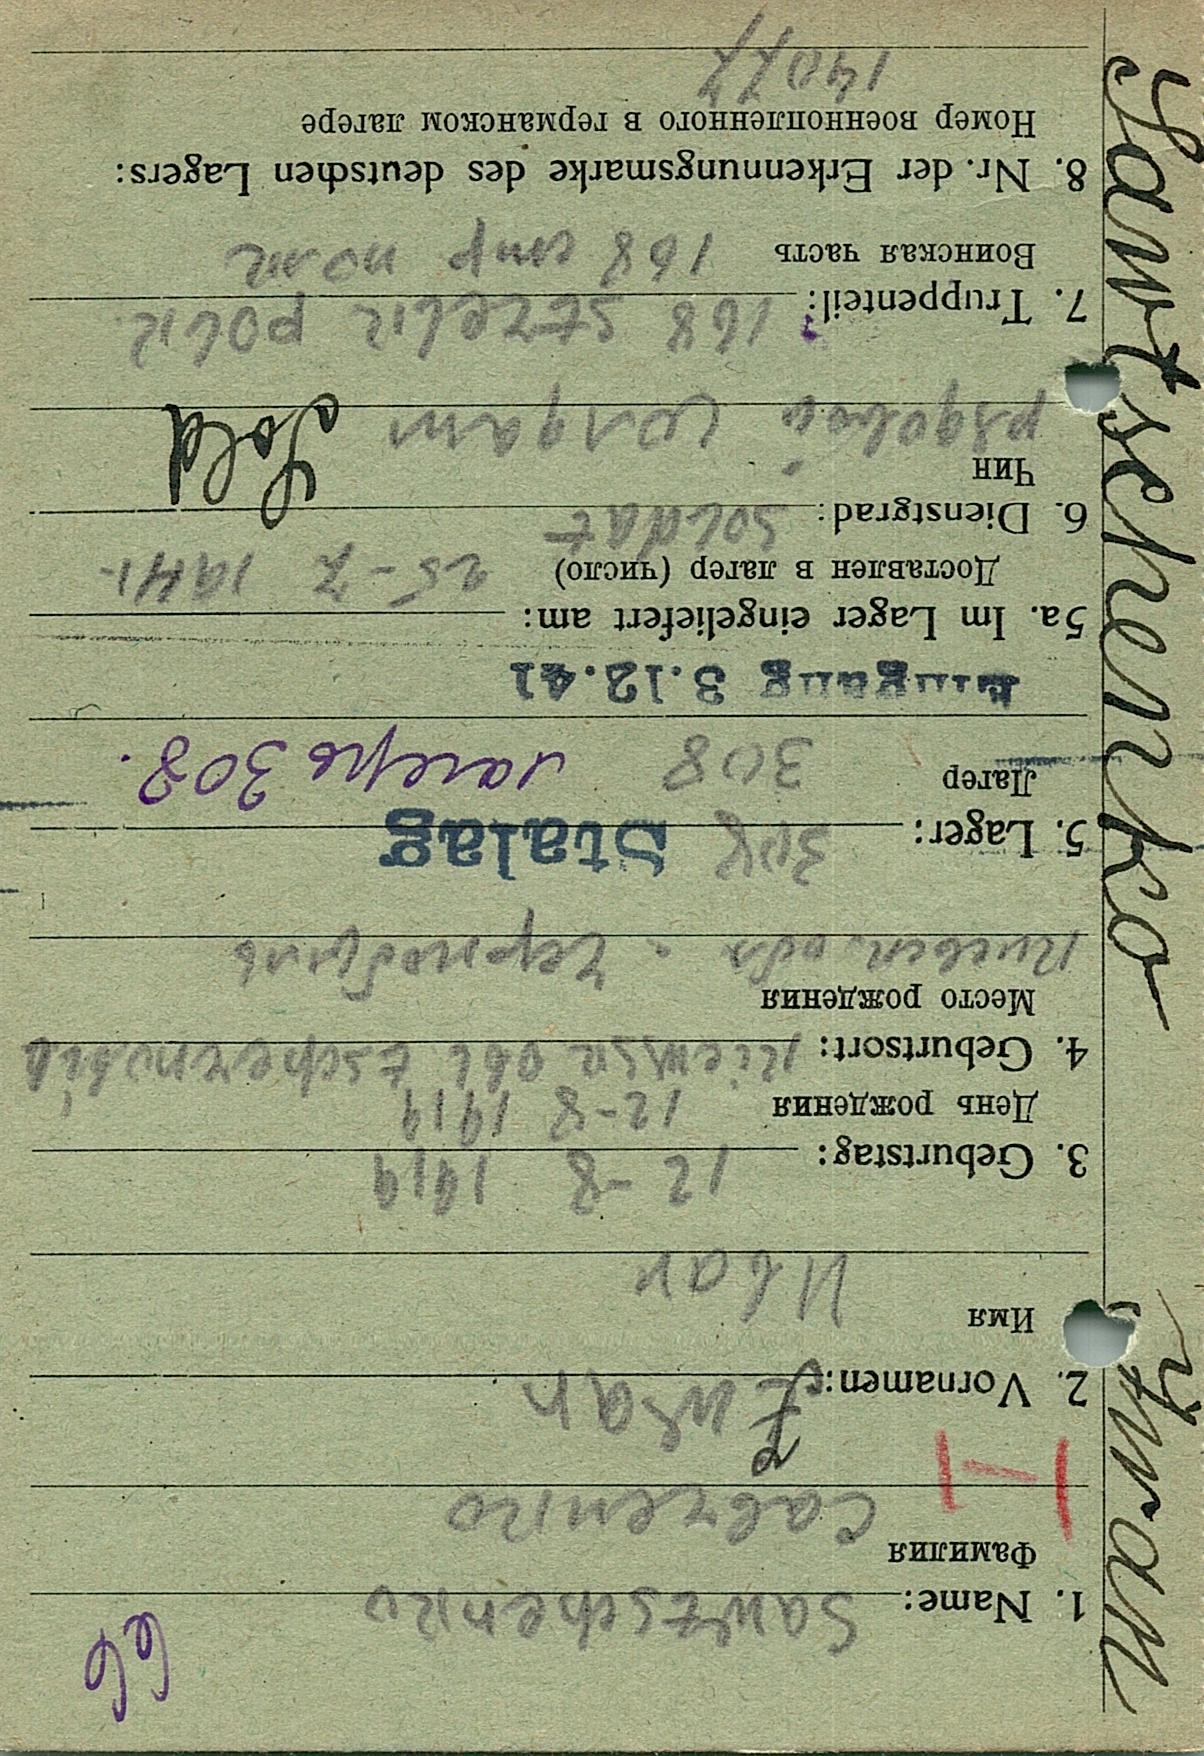 66
1. Name: Sawtschenko
Фамилия
Савченко
2. Vornamen: Iwan
Имя
Иван
3. Geburtstag: 12-8 1919
День рождения 12-8 1919
4. Geburtsort:
Место рождения
5. Lager: 308 Stalag
Лагерь 308 лагерь 308.
Eingang 3.12.41
5a. Im Lager eingeliefert am:
Доставлен в лагер (число) 25-7 1941
6. Dienstgrad: Soldat
Чин Sold
рядовой солдат
7. Truppenteil: 168
Воинская часть 168 стр полк
8. Nr. der Erkennungsmarke des deutschen Lagers:
Номер военнопленного в германском лагере
14077
Sawtschenko Iwan